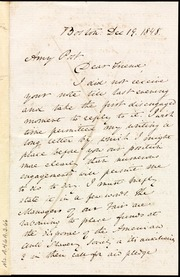 Boston Dec 19. 1848
Amy Post
Dear Friend
I did not receive
your note till last evening
and take the first disengaged
moment to reply to it. Such
time permitted my writing a
long letter by which I might
place before you our position
more clearly than numerous
engagements will permit me
to do so. I must briefly
state in a few words the
Managers of our Fair are
to place funds at
the disposal of the American
Anti Slavery Society & its auxiliaries
& on their call for aid pledge